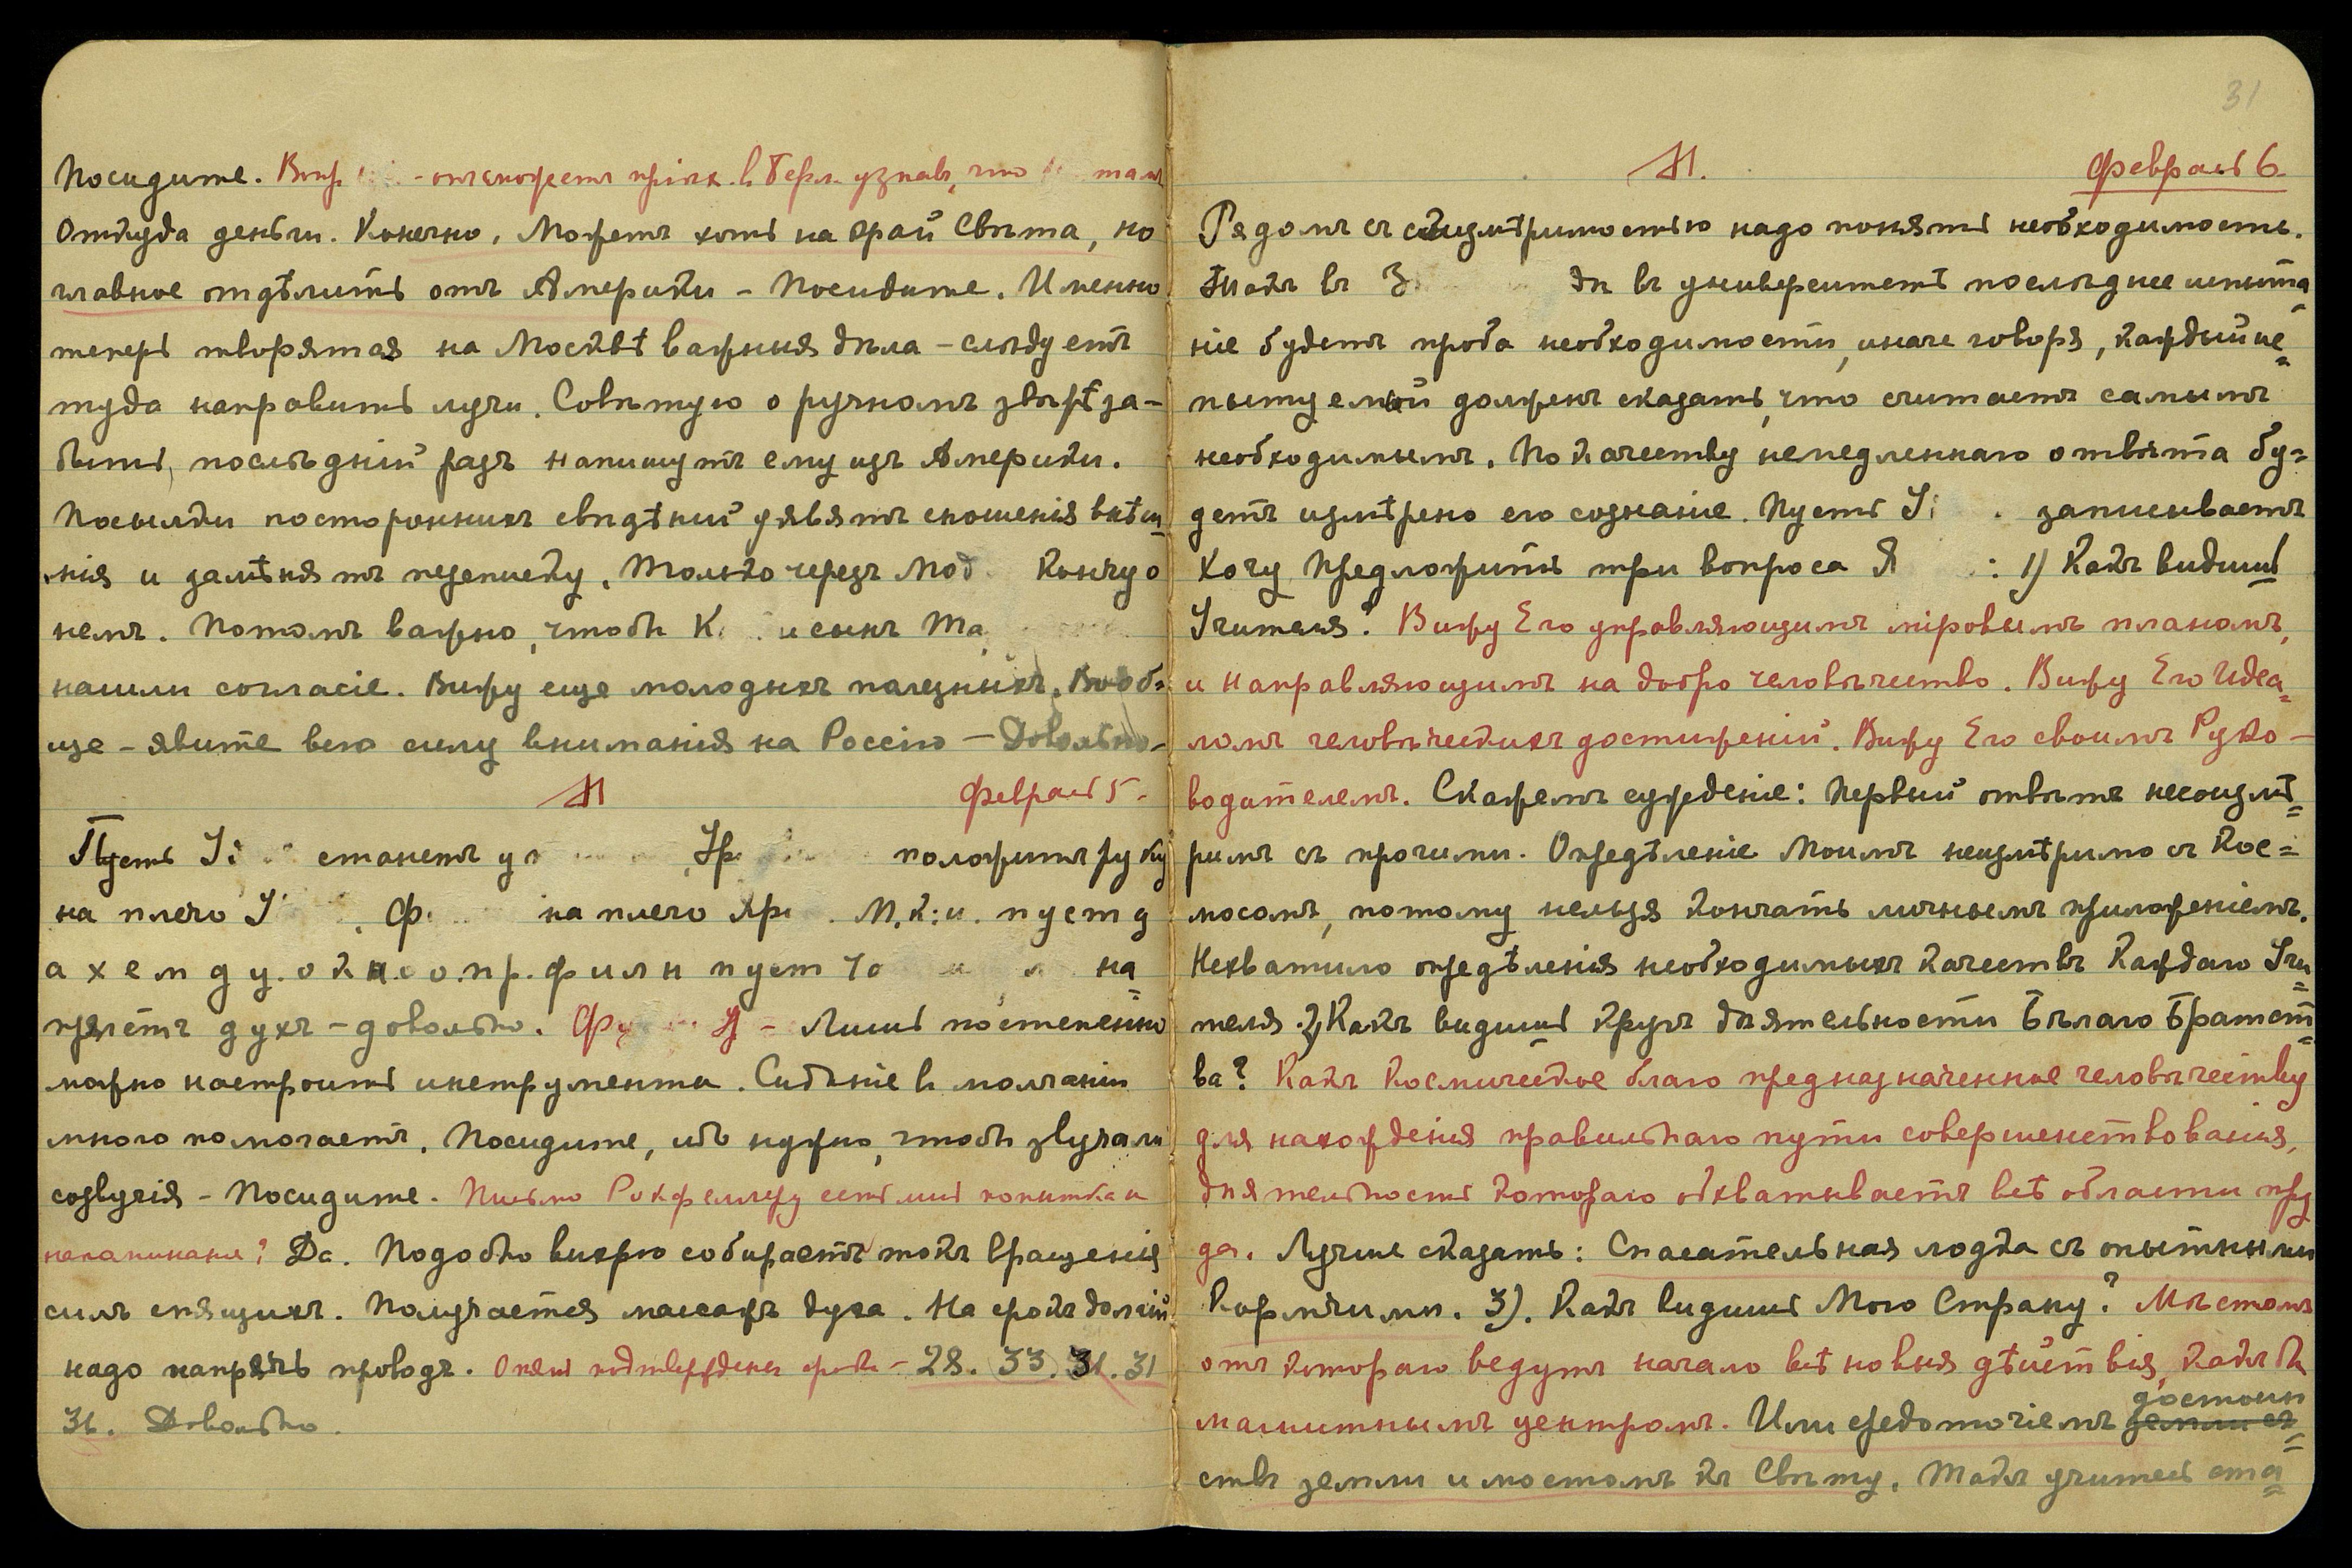 31
Посидите. - отъѣзжаетъ узнавъ, что тамъ
Откуда деньги. Конечно, Можетъ хоть на край Свѣта, но
главное отдѣлить отъ Америки – Посидите. Именно
теперь творятся на Москвѣ важныя дѣла – слѣдуетъ
туда направить лучи. Совѣтую о ручномъ звѣрѣ за-
быть, послѣдній разъ напишутъ ему изъ Америки.
Посылки постороннихъ свѣдѣній уявятъ сношенія внѣш=
нія и замѣнятъ переписку. Только черезъ Мод
немъ. Потомъ важно, чтобы К и сынъ Та
нашли согласіе. Вижу еще молодыхъ полезныхъ. Вооб=
ще – явите всю силу вниманія на Россію – Довольно.
М Февраль 5.
Пусть станетъ у положитъ руку
на плечо У . Ф на плечо Хр . М.к:и. пусту
а х е м д у . о к н . о о . п р . ф и л н пуст то на=
пряжетъ духъ – довольно. – Лишь постепенно
можно настроить инструменты. Сидѣніе въ молчаніи
много помогаетъ. Посидите, ибо нужно, чтобы звучали
созвучія – Посидите. Письмо Рокфеллеру есть лишь попытка и
напоминание? Да. Подобно вихрю собираетъ токъ вращенія
силъ спящихъ. Получается массажъ духа. На срокъ долгій
надо напрячь проводъ. Опять подтверждены сроки – 28. 33. 31. 31
31. Довольно.
М. Февраль 6.
Рядомъ съ соизмѣримостью надо понять необходимость.
Такъ въ З въ университетѣ послѣднее испыта=
ніе будетъ проба необходимости, иначе говоря, каждый ис=
пытуемый долженъ сказать, что считаетъ самымъ
необходимымъ. По качеству немедленнаго отвѣта бу=
детъ измѣрено его сознаніе. Пусть У . записываетъ
Хочу предложить три вопроса Я : 1) Какъ видишь
Учителя? Вижу Его управляющимъ міровымъ планомъ,
и направляющимъ на добро человѣчество. Вижу Его Идеа=
ломъ человѣческихъ достиженій. Вижу Его своимъ Руко–
водителемъ. Скажемъ сужденіе: Первый отвѣтъ несоизмѣ=
римъ съ прочими. Опредѣленіе Моимъ неизмѣримо съ Кос=
мосомъ, потому нельзя кончать личнымъ приложеніемъ.
Нехватило опредѣленія необходимыхъ качествъ Каждаго Учи=
теля. 2) Какъ видишь кругъ дѣятельности Бѣлаго Братст=
ва? Какъ Космическое благо предназначенное человѣчеству
для нахожденія правильнаго пути совершенствованія,
дѣятельность котораго охватываетъ всѣ области тру
да. Лучше сказать: Спасательная лодка съ опытными
Кормчими. 3). Какъ видишь Мою Страну? Мѣстомъ
отъ котораго ведутъ начало всѣ новыя дѣйствія, какъ бы
магнитнымъ центромъ. Или средоточіемъ достоин=
ствъ земли и мостомъ къ Свѣту. Такъ учитель ста=